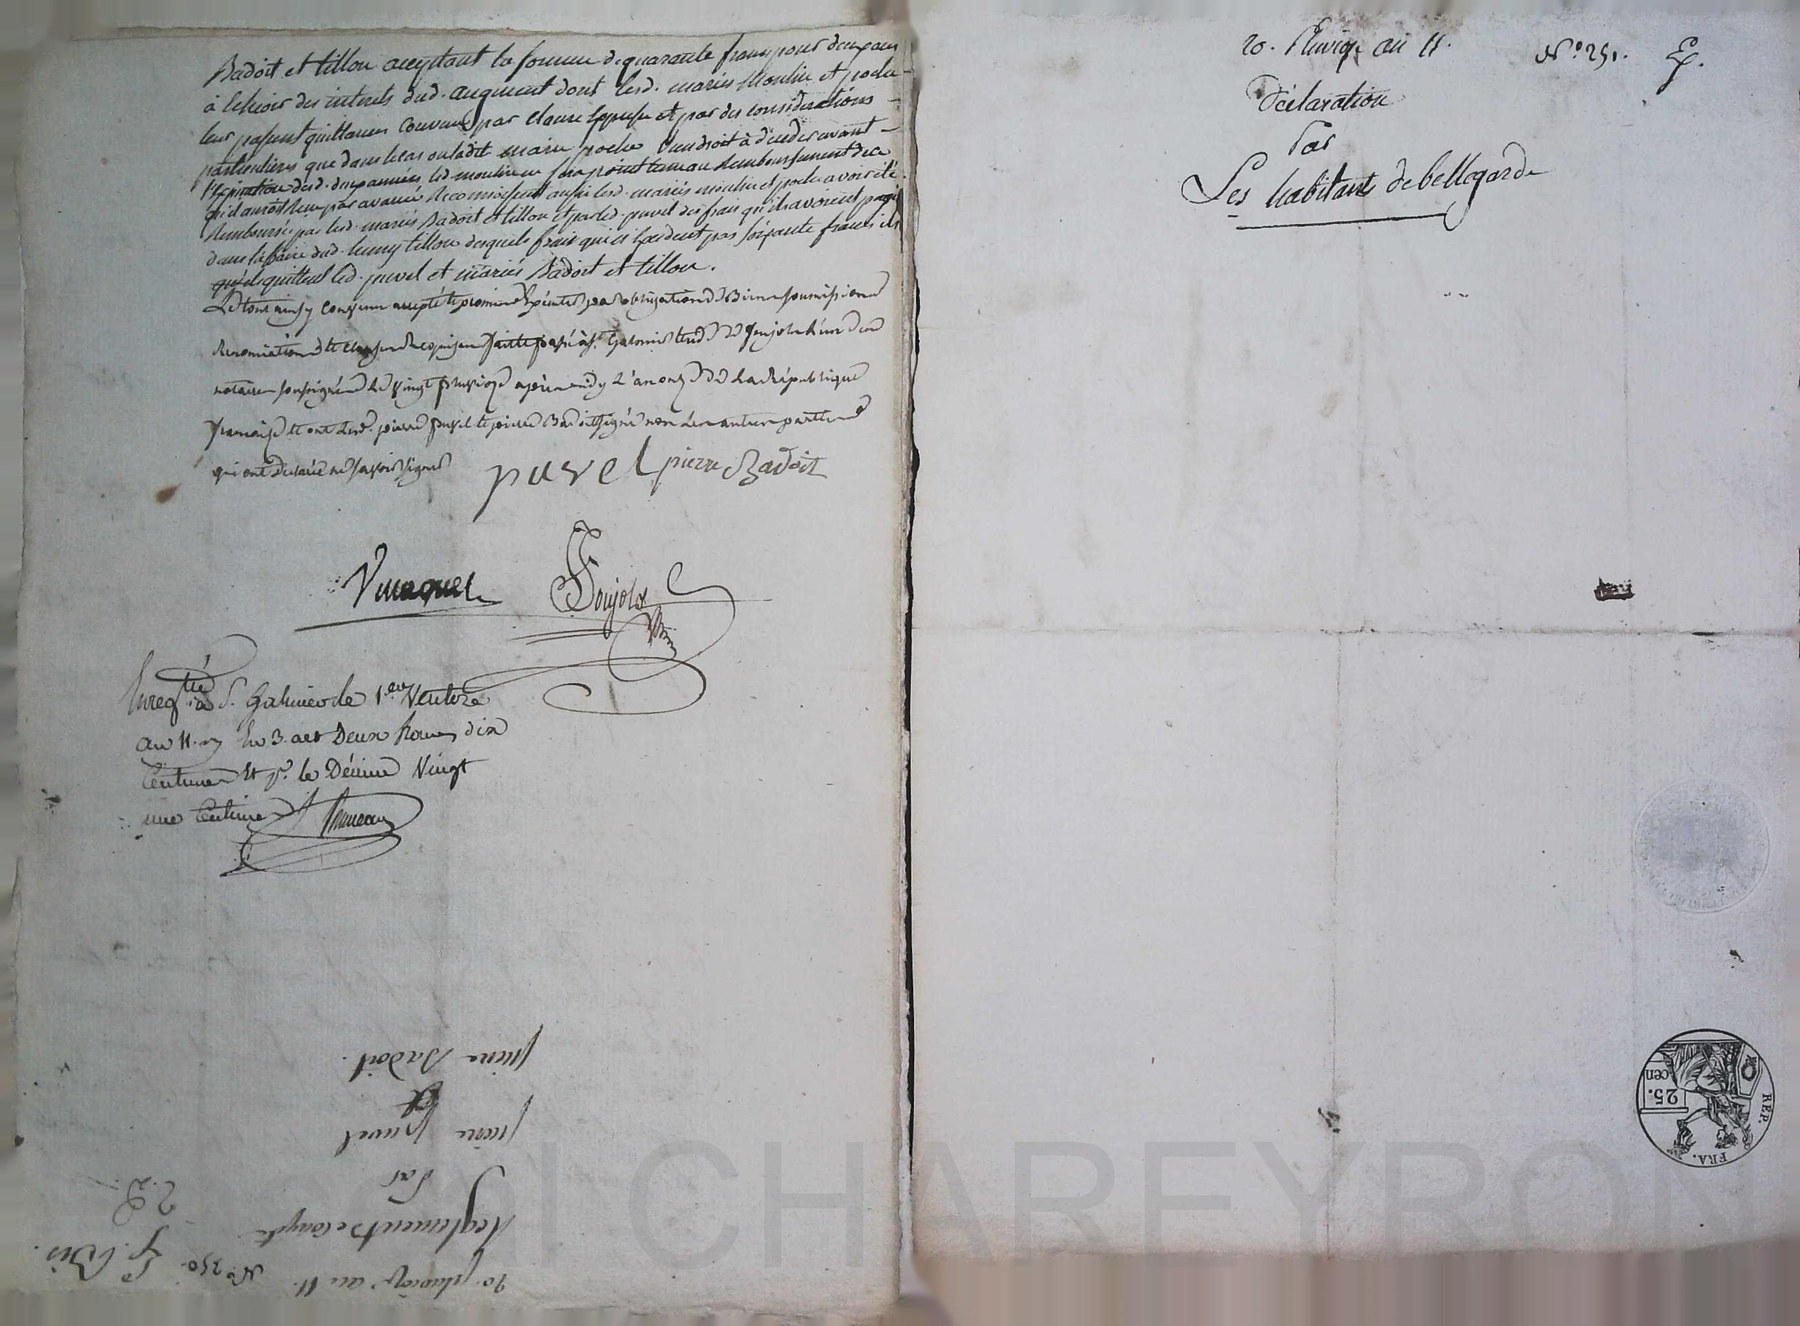 Badoit et tillon acceptant la somme de quarante francs pour deux ans
à échoir des interets dud. augment dont lesd. mariés Moulin et poche
leur passent quittance convenu par clause expresse et par des considérations
particulieres que dans le cas ou ladit marie poche viendroit à décéder avant
l'expiration desd. deux années led. moulin ne sera point tenu au remboursement de ce
qu'il auroit reçu par avance Reconnoissent aussi lesd. mariés moulin et poche avoir été
Remboursés par lesd. mariés Badoit et tillon et par led. puvel des frais qu'ils avoient payé
dans l'affaire dud. tillon desquels frais qui n'excedent pas soixante francs ils
quittent led. puvel et mariés Badoit et tillon.
Le tout ainsy convenu accepté promis par obligation de Biens soumissions
Renonciations et clauses Requises fait et passé à St. Galmier etude de Poujolat l'un des
notaires soussignés le vingt pluviose après midy l'an onze de la République
française et ont lesd. pierre puvel et pierre Badoit signé non les autres parties
qui ont declaré ne savoir signer
puvel pierre Badoit
Poujolat
Enregtré à St. Galmier le 1er Ventose
an 11. Deux francs dix
Centimes et pr. le Décime Vingt
une Centimes
20. pluviose an 11. No 250.
Reglement de compte
Par
pierre puvel
et
pierre Badoit.
20. Pluviose an 11. No 251. Ex.
Déclaration
Par
Les habitants de bellegarde
REP. FRA.
25.
cen
CHAREYRON